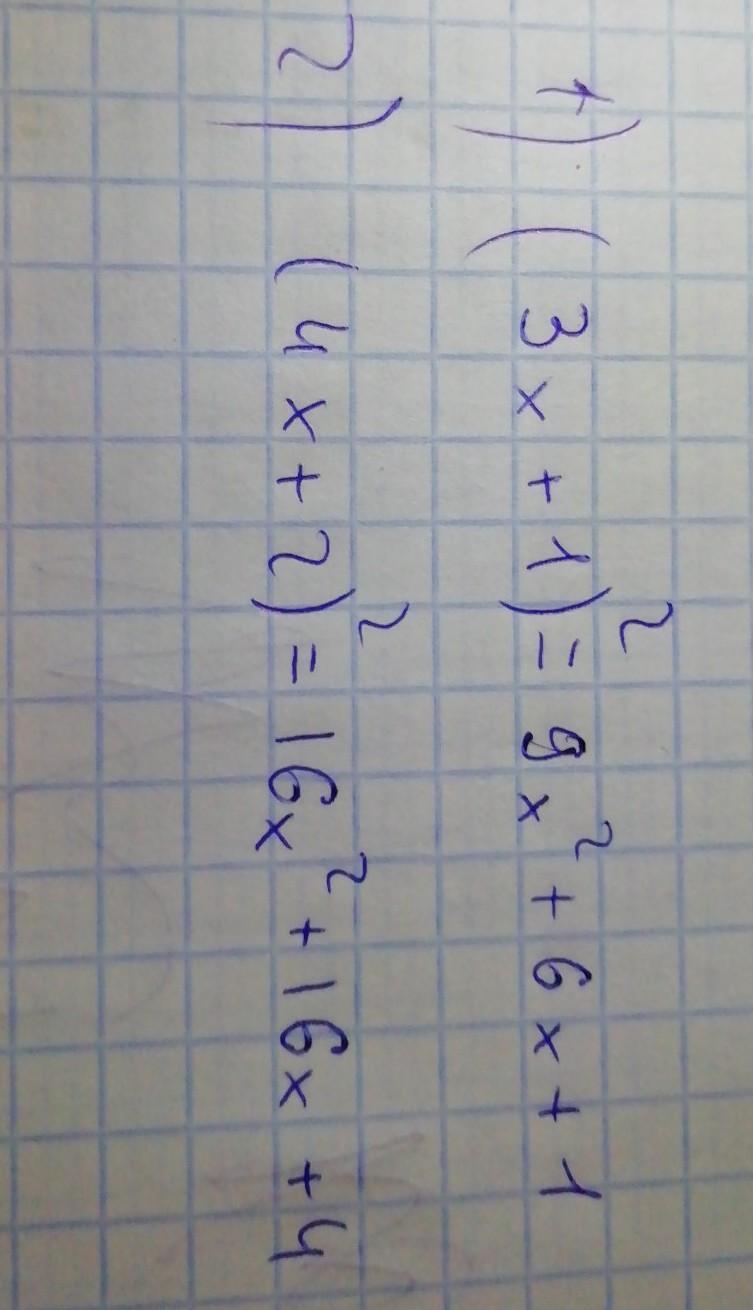 1) (3x + 1)² = 9x² + 6x + 1
2) (4x + 2)² = 16x² + 16x + 4